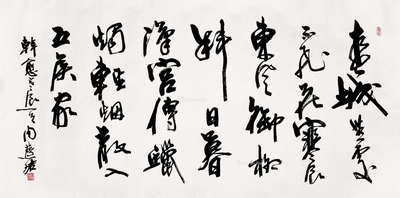 春城無處
不飛花寒食
東風御柳
斜日暮
漢宮傳蠟
燭輕烟散入
五侯家
韓